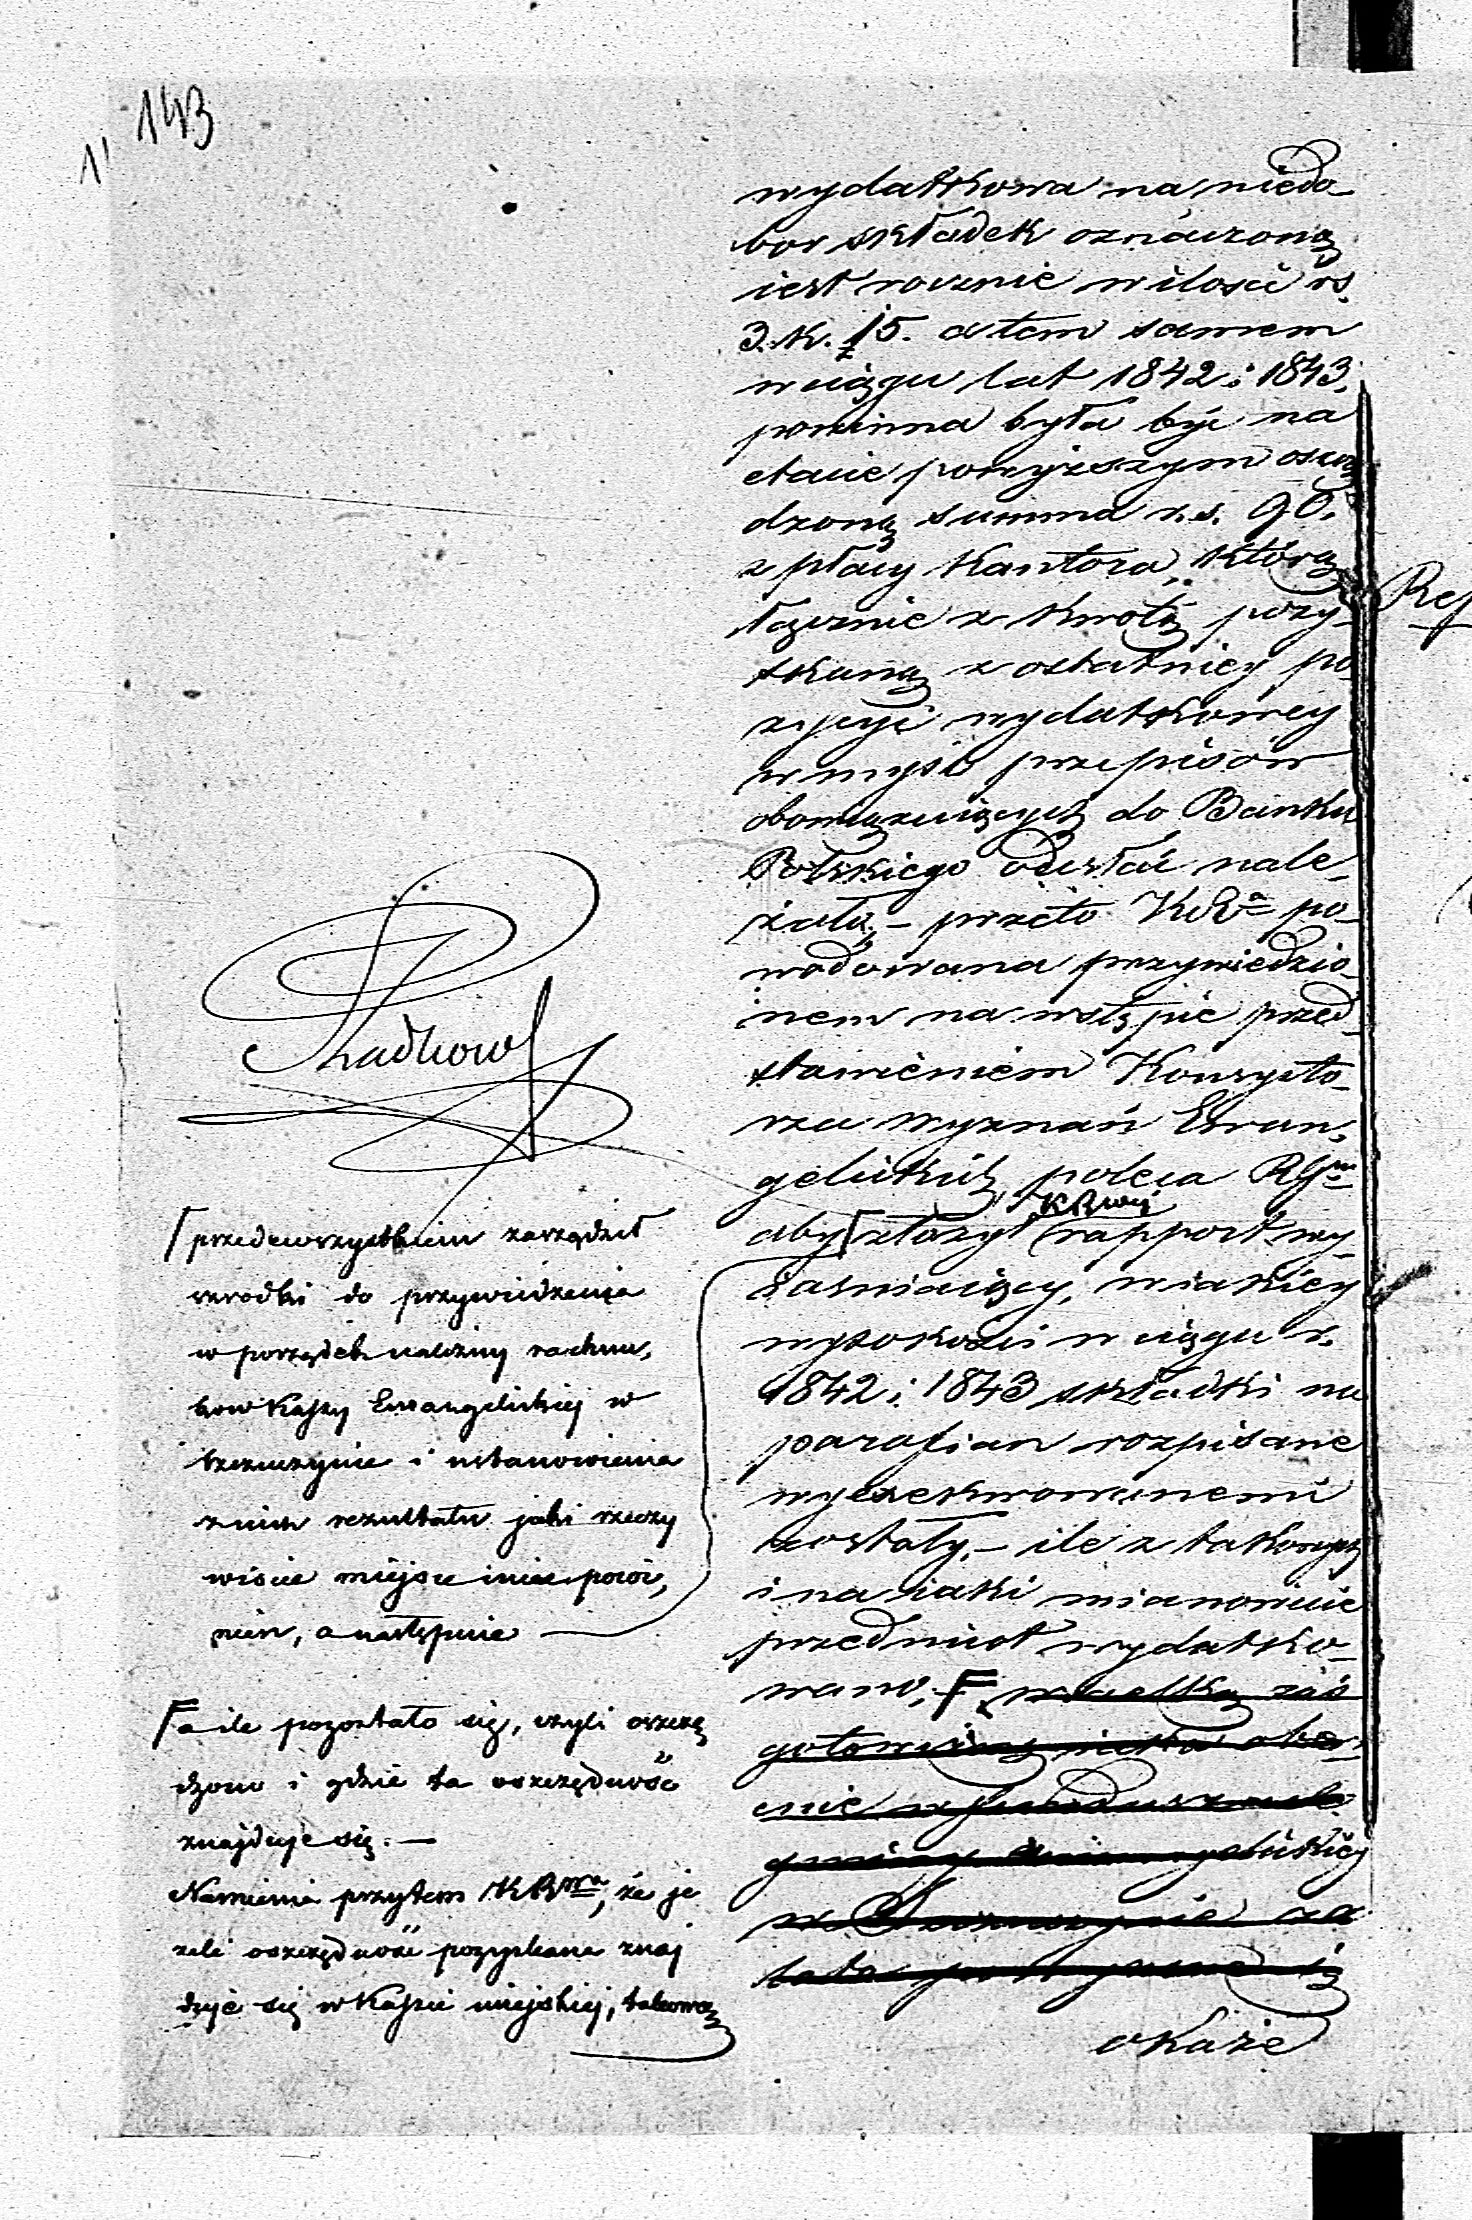 143
wydatkowa na niedo-
bor składek oznaczoną
iest rocznie w ilości rs.
3. k. 15. a tem samem
w ciągu lat 1842 i 1843.
powinna była być na
etacie powyższym oszczę
dzoną summa r.s. 90.
z płacy Kantora, którą
łącznie z kwotą pozy-
skaną z ostatniey po-
zycyi wydatkowey
w myśl przepisów
obowiązuiących do Banku
Polskiego odesłać nale-
żało, – przeto KRa po-
wodowana przywiedzio-
nem na wstępie przed-
stawieniem Konsysto-
rza Wyznań Ewan-
gelickich poleca RGmu
aby Γ złożył KRwej rapport wy-
iaśniaiący, w iakiey
wysokości w ciągu r.
1842 i 1843 składki na
parafian rozpisane
wyexekwowanemi
zostały, – ile z takowych
i na iaki mianowicie
przedmiot wydatko-
wano, F wszelką zaś
gotowiznę
gminy
w Brzezinach za
lata
okaże
Radkow
Γ przedewszystkiem zarządził
srodki do przywiedzenia
w porządek należny rachun,
kow Kassy Ewangelickiej w
i ustanowienia
z nich rezultatu jaki rzeczy
wiście miejsce mieć powi,
nien, a następnie
F a ile pozostało się, czyli oszczę
dzono i gdzie ta oszczędność
znajduje się. –
Namienia przytem KRwa, że je
żeli oszczędność pozyskana znaj
dzie się w Kassie miejskiej, takową